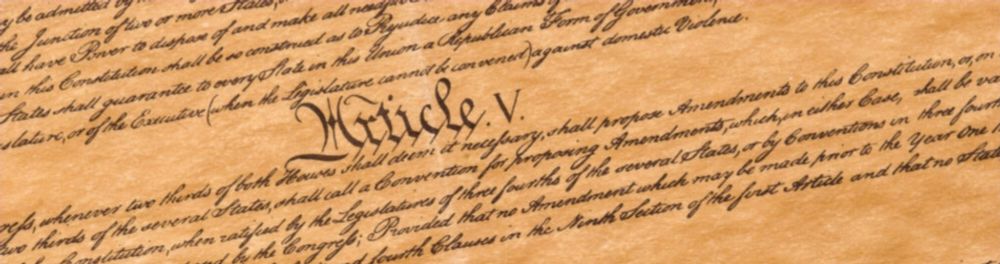 y be admitted by
the Junction of two or more States,
all have Power to dispose of and make all needful
in this Constitution shall be so construed as to Prejudice any Claims of
States shall guarantee to every State in this Union a Republican Form of Government,
slature, or of the Executive (when the Legislature cannot be convened) against domestic Violence.
Article. V.
gress, whenever two thirds of both Houses shall deem it necessary, shall propose Amendments to this Constitution, or, on
two thirds of the several States, shall call a Convention for proposing Amendments, which, in either Case, shall be va
Constitution, when ratified by the Legislatures of three fourths of the several States, or by Conventions in three four
by the Congress; Provided that no Amendment which may be made prior to the Year One
fourth Clauses in the Ninth Section of the first Article; and that no State